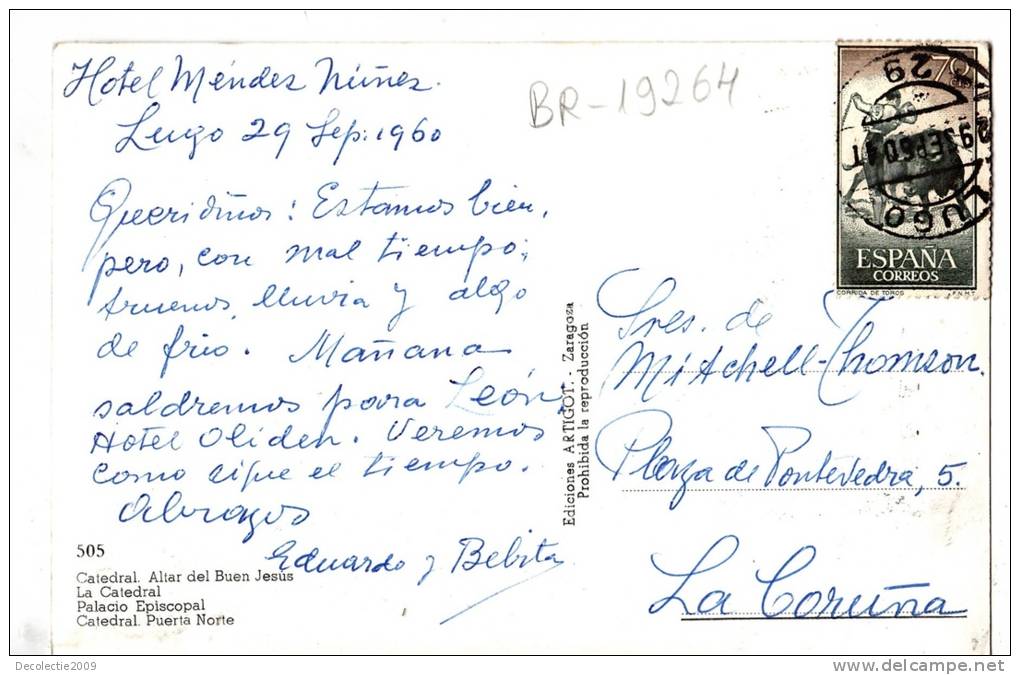 Hotel Méndez Núñez.
Lugo 29 Sep: 1960
BR-19264
Queridiños: Estamos bien,
pero, con mal tiempo;
truenos, lluvia y algo
de frio. Mañana
saldremos para León,
Hotel Oliden. Veremos
como sigue el tiempo.
Abrazos
Eduardo y Bebita
505
Catedral. Altar del Buen Jesús
La Catedral
Palacio Episcopal
Catedral. Puerta Norte
Ediciones ARTIGOT. - Zaragoza
Prohibida la reproducción
70
29
29SEP60 4T
LUGO
ESPAÑA
CORREOS
CORRIDA DE TOROS F.N.M.T
Sres. de
Mitchell-Thomson.
Plaza de Pontevedra, 5.
La Coruña
Decolectie2009
www.delcampe.net